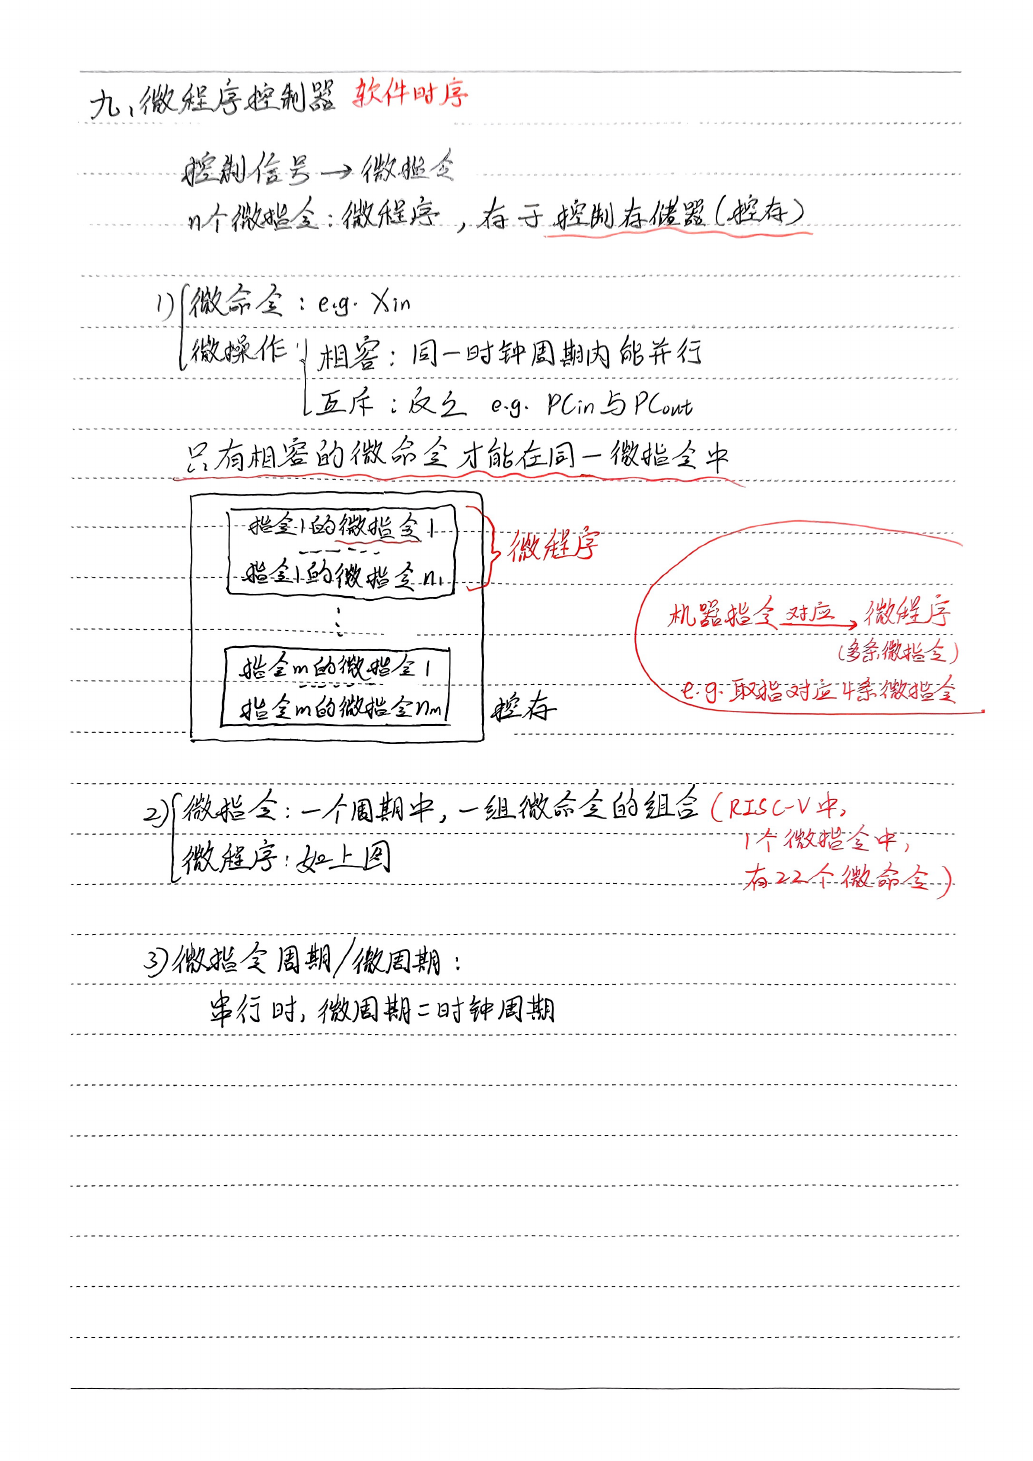 九、微程序控制器 软件时序
控制信号→微指令
n个微指令:微程序,存于控制存储器(控存)
1) 微命令:e.g. Xin
微操作: 相容:同一时钟周期内能并行
互斥:反之 e.g. PCin与PCout
只有相容的微命令才能在同一微指令中
指令1的微指令1
指令1的微指令n1
微程序
⋮
指令m的微指令1
指令m的微指令nm
控存
机器指令 对应→ 微程序
(多条微指令)
e.g. 取指对应4条微指令
2) 微指令:一个周期中,一组微命令的组合(RISC-V中,
1个微指令中,
有22个微命令)
微程序:如上图
3)微指令周期/微周期:
串行时,微周期=时钟周期